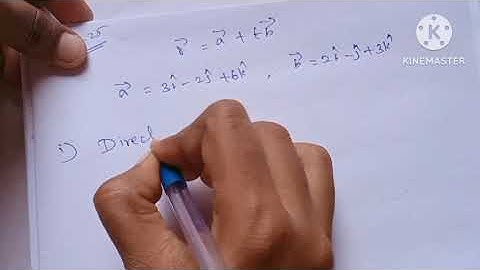 25
r⃗ = a⃗ + tb⃗
a⃗ = 3î - 2ĵ + 6k̂ , b⃗ = 2î - ĵ + 3k̂
i) Direc
KINEMASTER